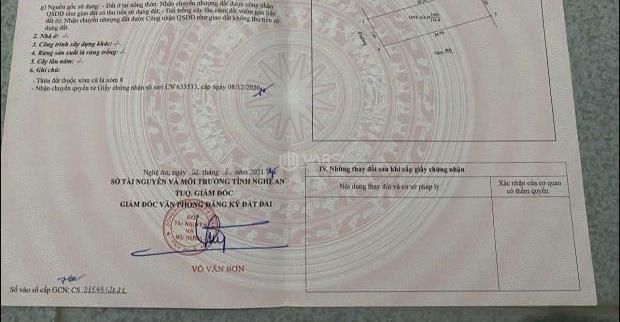 g) Nguồn gốc sử dụng: - Đất ở tại nông thôn: Nhận chuyển nhượng đất được công nhận
QSDĐ như giao đất có thu tiền sử dụng đất; - Đất trồng cây lâu năm
đất ở): Nhận chuyển nhượng đất được Công nhận QSDĐ như giao đất không thu tiền sử
dụng đất.
2. Nhà ở: -/-
3. Công trình xây dựng khác: -/-
4. Rừng sản xuất là rừng trồng: -/-
5. Cây lâu năm: -/-
6. Ghi chú:
- Thửa đất thuộc xóm cũ là xóm 8
- Nhận chuyển quyền từ Giấy chứng nhận số seri CV 633533, cấp ngày 08/12/2020
Đường
Nghệ An, ngày 02 tháng năm 2021
SỞ TÀI NGUYÊN VÀ MÔI TRƯỜNG TỈNH NGHỆ AN
TUQ. GIÁM ĐỐC
GIÁM ĐỐC VĂN PHÒNG ĐĂNG KÝ ĐẤT ĐAI
SỞ
TÀI NGUYÊN
VÀ
MÔI TRƯỜNG
VÕ VĂN SƠN
Số vào sổ cấp GCN: CS
IV. Những thay đổi sau khi cấp giấy chứng nhận
Nội dung thay đổi và cơ sở pháp lý
Xác nhận của cơ quan
có thẩm quyền